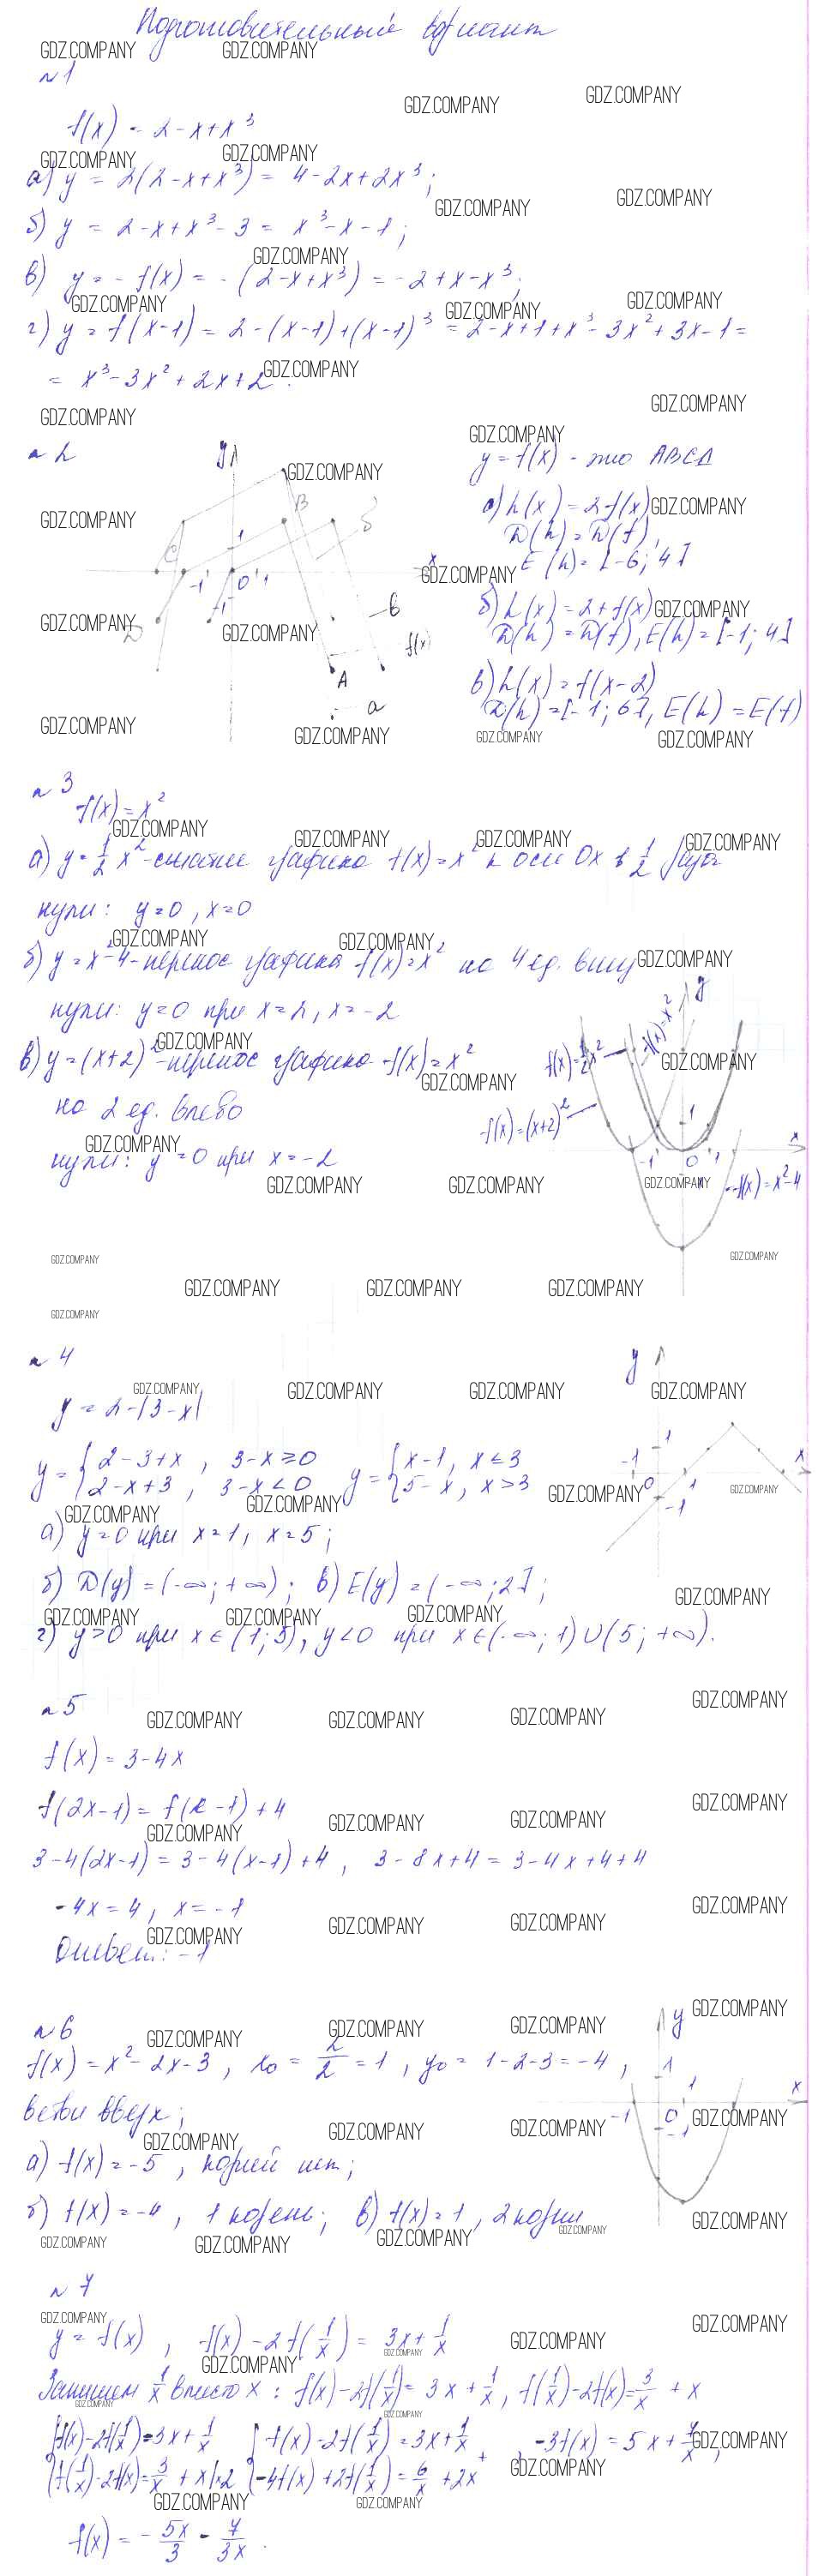 Подготовительный вариант
№1
f(x) = 2-x+x³
а) y = 2(2-x+x³) = 4-2x+2x³;
б) y = 2-x+x³-3 = x³-x-1;
в) y = -f(x) = -(2-x+x³) = -2+x-x³;
г) y = f(x-1) = 2-(x-1)+(x-1)³ = 2-x+1+x³-3x²+3x-1 =
= x³-3x²+2x+2.
№2
y = f(x) - это ABCD
а) h(x) = 2f(x)
D(h) = D(f),
E(h) = [-6; 4]
б) h(x) = 2+f(x)
D(h) = D(f), E(h) = [-1; 4]
в) h(x) = f(x-2)
D(h) = [-1; 6], E(h) = E(f)
y
B
б
C
-1 0 1
1
-1
x
D
в
f(x)
A
а
№3
f(x) = x²
а) y = 1/2 x² - сжатие графика f(x) = x² к оси Ox в 1/2 раза
нули: y=0, x=0
б) y = x²-4 - перенос графика f(x) = x² на 4 ед. вниз
нули: y=0 при x=2, x=-2
в) y = (x+2)² - перенос графика f(x) = x²
на 2 ед. влево
нули: y=0 при x=-2
y
f(x)=1/2x²
f(x)=x²
f(x)=(x+2)²
1
x
-1 0 1
f(x)=x²-4
№4
y = 2-|3-x|
y = { 2-3+x, 3-x≥0
2-x+3, 3-x<0
y = { x-1, x≤3
5-x, x>3
y
1
-1 0 1
-1
x
а) y=0 при x=1, x=5;
б) D(y) = (-∞; +∞); в) E(y) = (-∞; 2];
г) y>0 при x∈(1; 5), y<0 при x∈(-∞; 1)∪(5; +∞).
№5
f(x) = 3-4x
f(2x-1) = f(x-1)+4
3-4(2x-1) = 3-4(x-1)+4, 3-8x+4 = 3-4x+4+4
-4x=4, x=-1
Ответ: -1
№6
f(x) = x²-2x-3, x₀ = 2/2 = 1, y₀ = 1-2-3 = -4,
ветви вверх;
а) f(x) = -5, корней нет;
б) f(x) = -4, 1 корень; в) f(x) = 1, 2 корня
y
1
1
x
-1 0
-1
№7
y = f(x), f(x)-2f(1/x) = 3x+1/x
Запишем 1/x вместо x: f(x)-2f(1/x) = 3x+1/x, f(1/x)-2f(x) = 3/x + x
{ f(x)-2f(1/x) = 3x+1/x { f(x)-2f(1/x) = 3x+1/x + , -3f(x) = 5x+7/x,
f(1/x)-2f(x) = 3/x + x |·2 -4f(x)+2f(1/x) = 6/x+2x
f(x) = -5x/3 - 7/3x.
GDZ.COMPANY